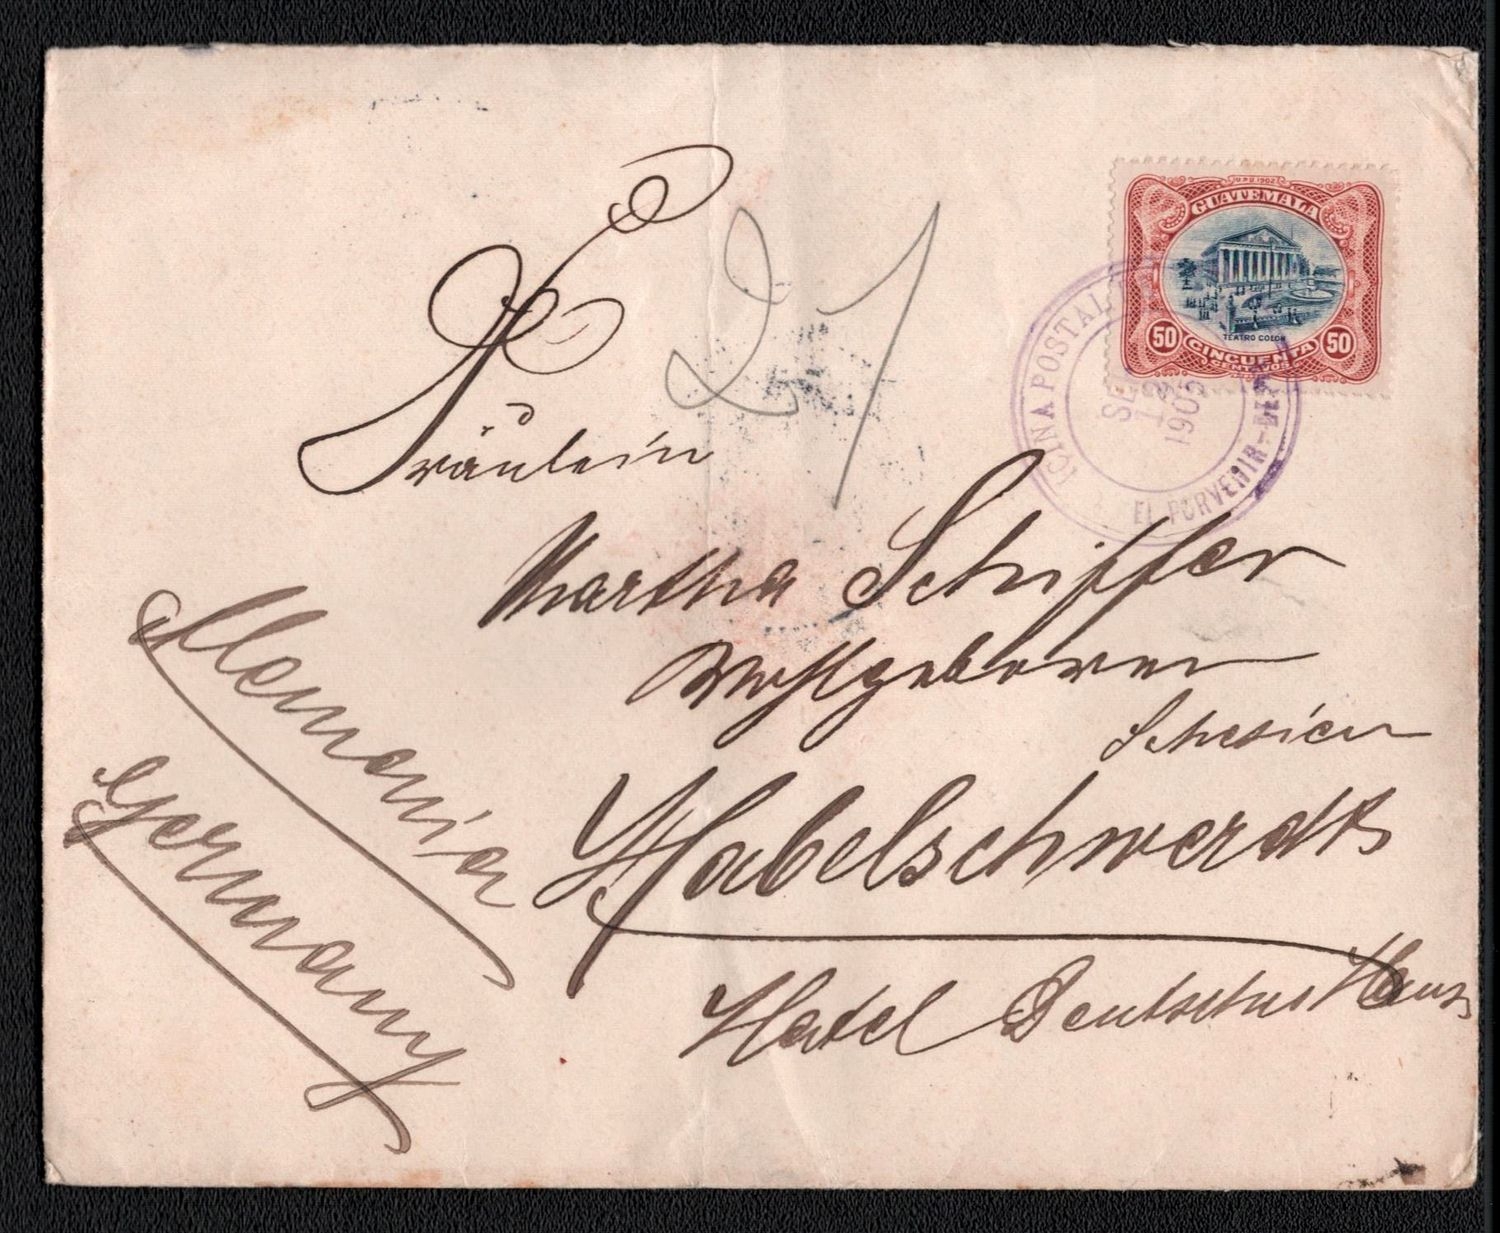 U.P.U. 1902
GUATEMALA
TEATRO COLON
50 CINCUENTA 50
CENTAVOS
CINA POSTAL
SE
13
1905
EL PORVENIR-DE
21
Fräulein
Martha Schiffer
Wohlgeboren
Schesien
Habelschwerdt
Hotel Deutsches Haus
Allemania
Germany